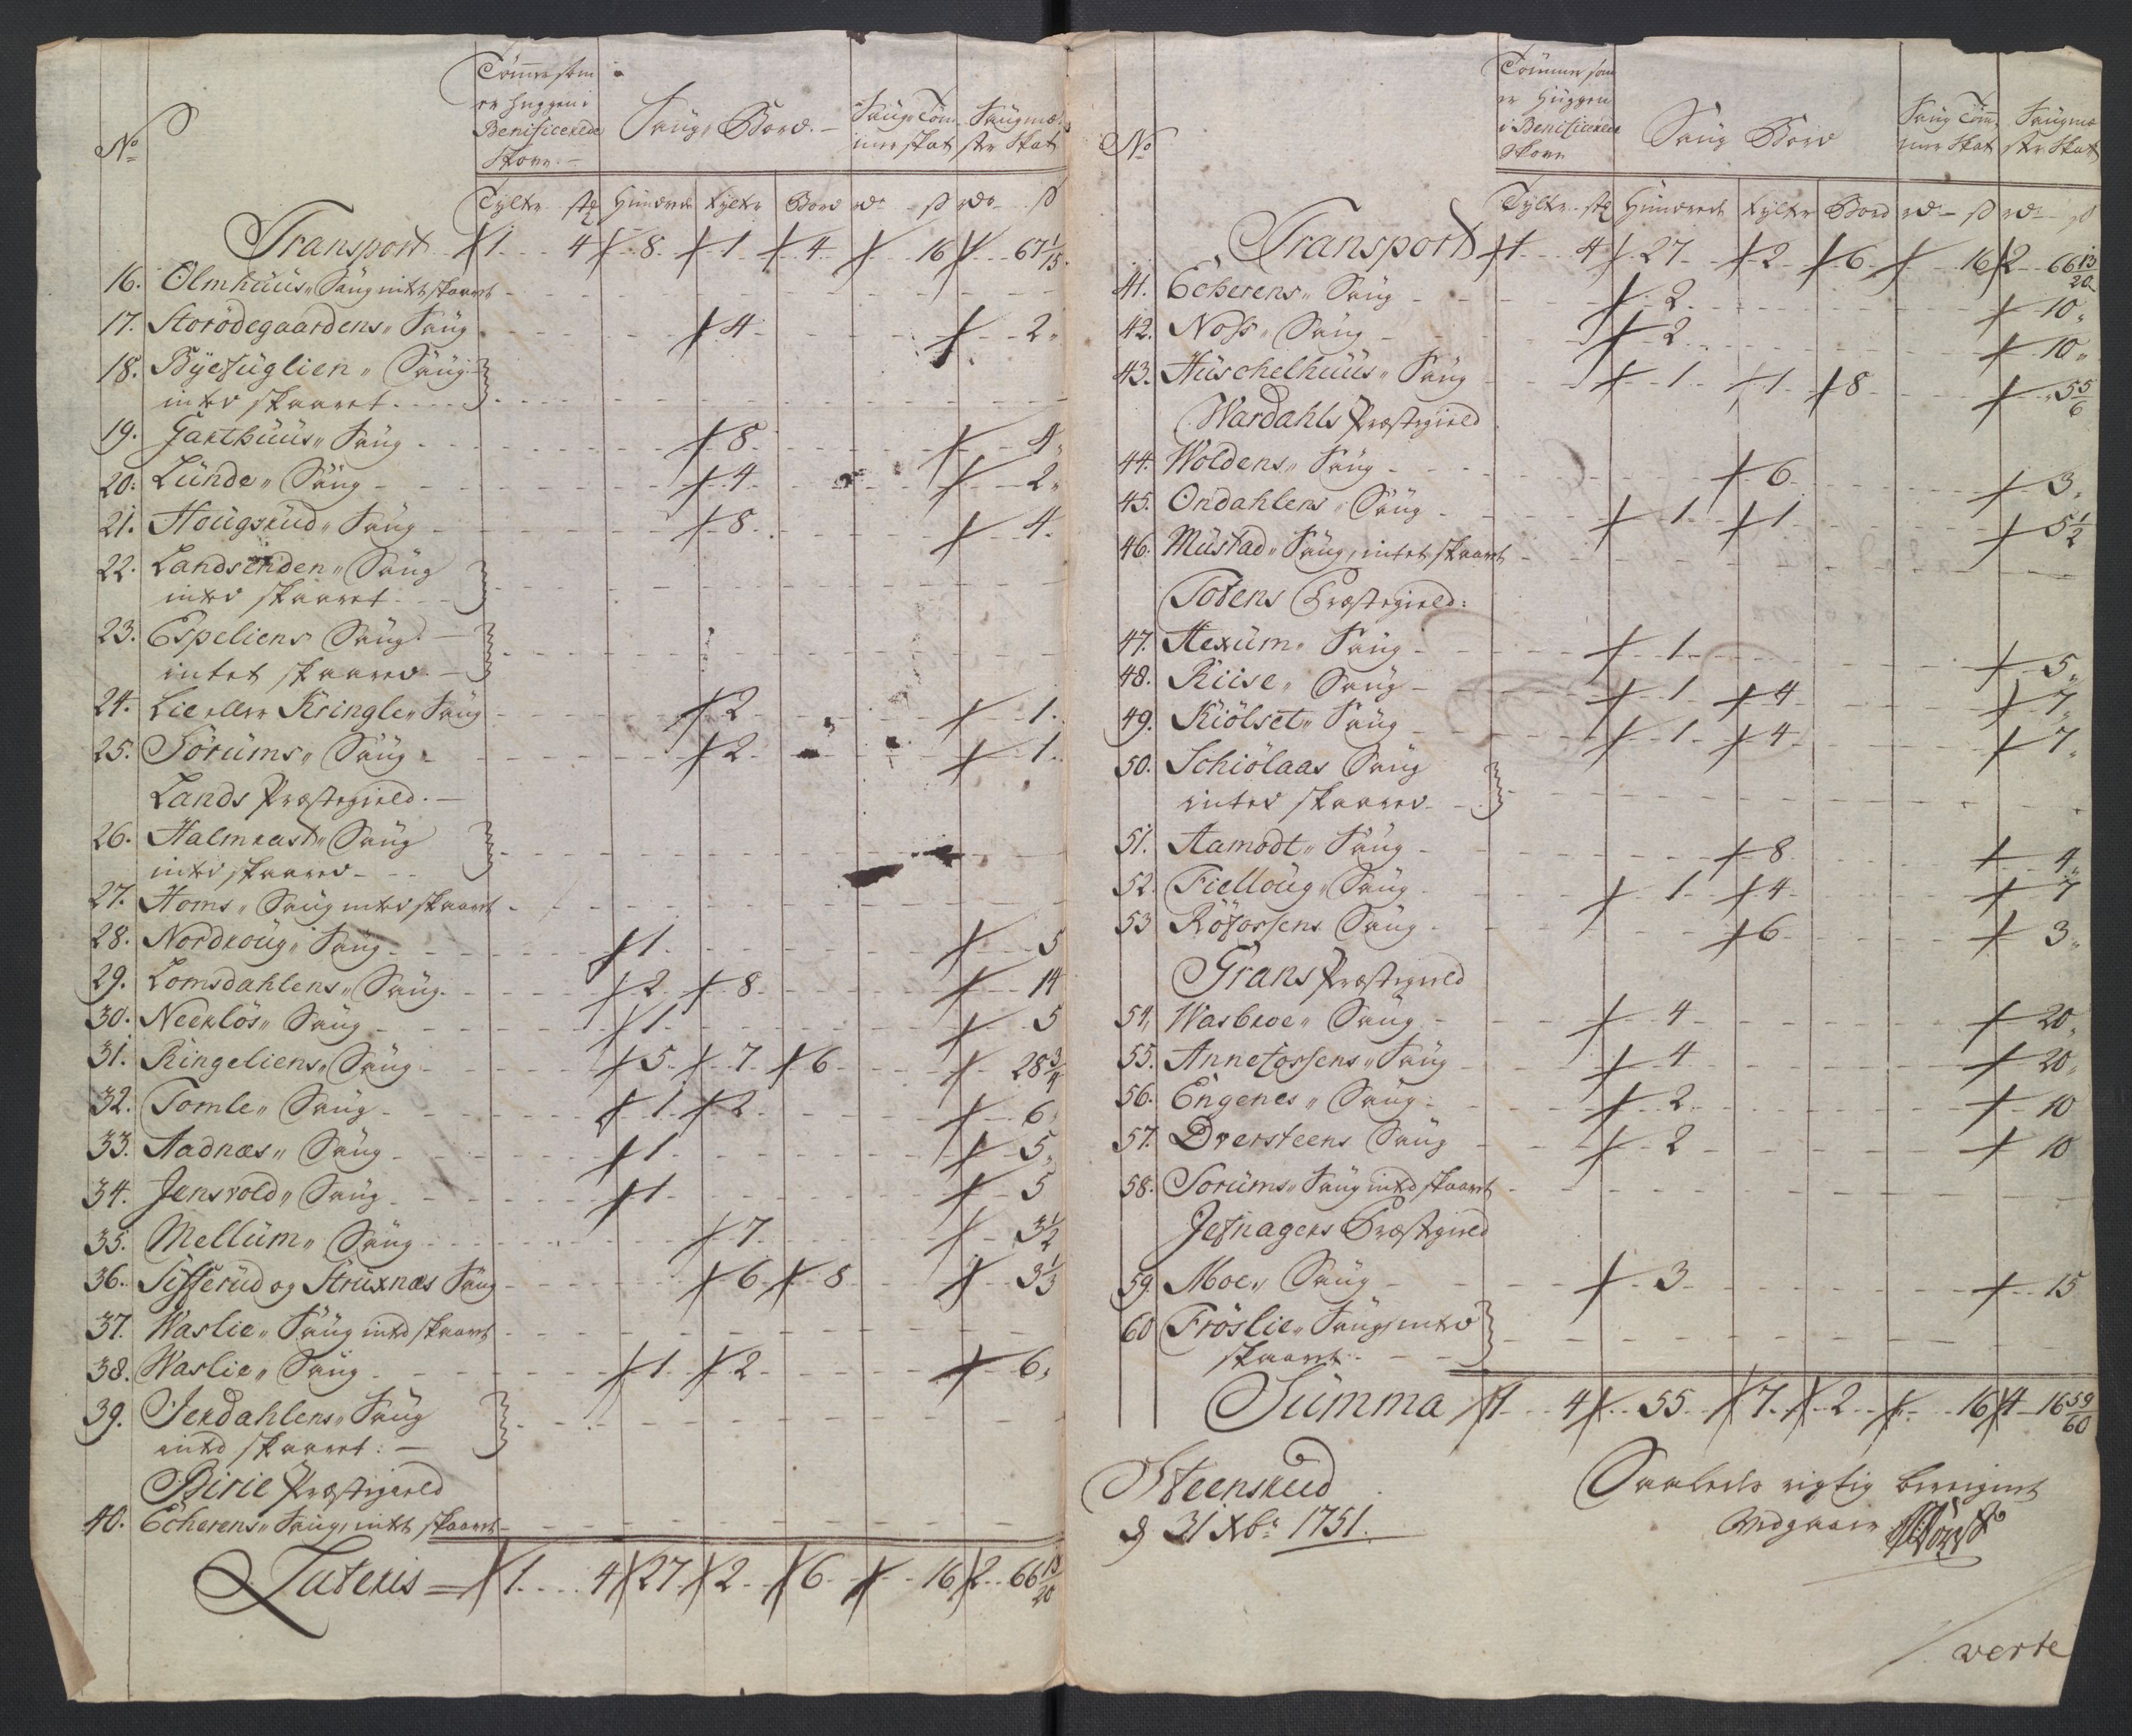 No
Tömmer som
er huggen i
Benificerede
Skove.
Saug Bord.
Saug Töm-
mer skat
Saugme-
ster Skat
Tylter stk Hundrede Tylter Bord rdr ß rdr ß
Transport 1 4 8 1 4 16 67 1/15
16. Olmhuus Saug intet skaaret
17. Storödegaardens Saug 4 2
18. Byefuglien Saug
inted skaaret
19. Garthuus Saug 8 4
20. Lunde Saug 4 2
21. Hougsrud Saug 8 4
22. Landsenden Saug
inted skaaret
23. Espeliens Saug
intet skaared
24. Lie eller Kringle Saug 2 1
25. Sörums Saug 2 1
Lands Præstegield.
26. Halmrast Saug
inted skaared
27. Homs Saug inted skaaret
28. Nordroug Saug 1 5
29. Lomsdahlens Saug 2 8 14
30. Neerlös Saug 1 5
31. Ringeliens Saug 5 7 6 28 3/4
32. Tomle Saug 1 2 6
33. Aadnæs Saug 1 5
34. Jensvold Saug 1 5
35. Mellum Saug 7 3 1/2
36. Sifferud og Struxnæs Saug 6 8 3 1/3
37. Waslie Saug inted skaaret
38. Waslie Saug 1 2 6
39. Jerdahlens Saug
inted skaaret:
Birie Præstegield
40. Echerens Saug, intet skaaret
Lateris 1 4 27 2 6 16 2 66 13/20
No
Tömmer som
er Huggen
i Benificerede
Skove
Saug Bord
Saug Töm-
mer Skat
Saugme-
ster Skat
Tylter stk Hundrede Tylter Bord rdr ß rdr ß
Transport 1 4 27 2 6 16 2 66 13/20
41. Echerens Saug 2 10
42. Noss Saug 2 10
43. Huschelhuus Saug 1 1 8 5 5/6
Wardahls Præstegield
44. Woldens Saug 6 3
45. Ondahlens Saug 1 1 5 1/2
46. Mustad Saug, intet skaaret
Totens Præstegield:
47. Hexum Saug 1 5
48. Riise Saug 1 4 7
49. Kiölset Saug 1 4 7
50. Schiölaas Saug
inted skaared
51. Aamodt Saug 8 4
52. Fielloug Saug 1 4 7
53 Röfossens Saug 6 3
Grans Præstegield
54. Wasbroe Saug 4 20
55. Annefossens Saug 4 20
56. Engenes Saug 2 10
57. Dversteens Saug 2 10
58. Sorums Saug inted skaaret
Jefnagers Præstegield
59. Moe Saug 3 15
60 Fröslie Saug, inted
skaaret
Summa 1 4 55 7 2 16 4 16 59/60
Steensrud
d 31 Xbr 1751.
Saaledes rigtig beregnet
verte